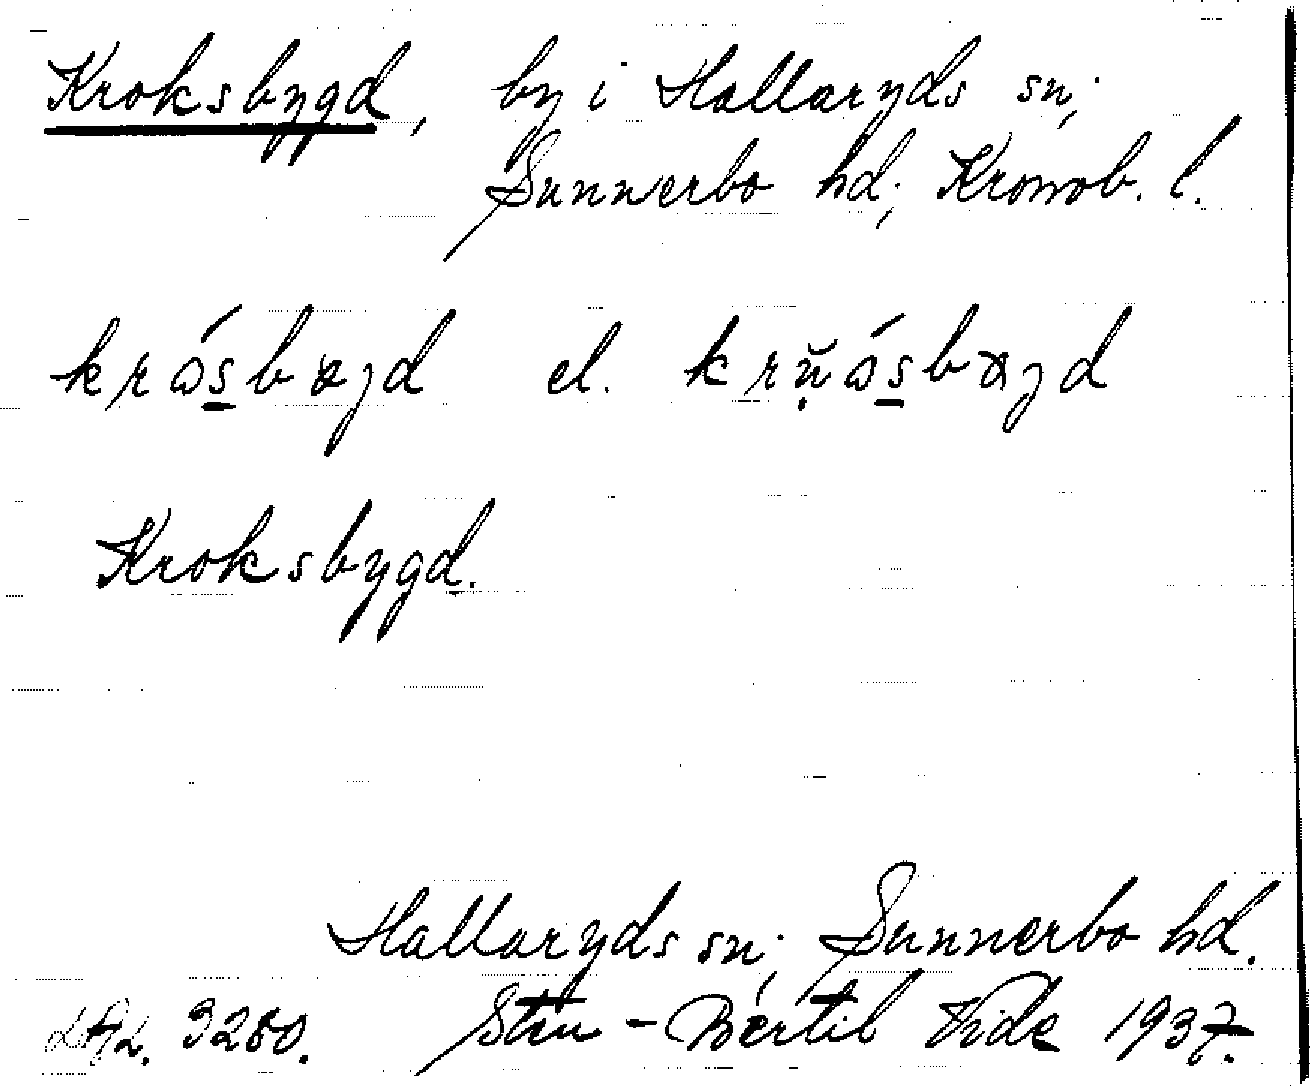 Kroksbygd, by i Hallaryds sn;
Sunnerbo hd; Kronob. l.
krɷ́sbygd el. krŭɷ́sbygd
Kroksbygd.
Hallaryds sn; Sunnerbo hd.
3280. Sten-Bertil Vide 1937.